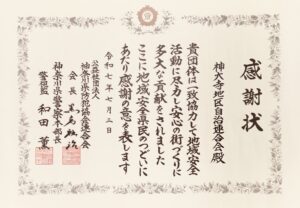 感謝状
神大寺地区自治連合会殿
貴団体は一致協力して地域安全
活動に尽力し安心の街づくりに
多大な貢献をされました
ここに地域安全県民のつどいに
あたり感謝の意を表します
令和七年七月二日
公益社団法人
神奈川県防犯協会連合会
会長
神奈川県警察本部長
警視監 和田 薫